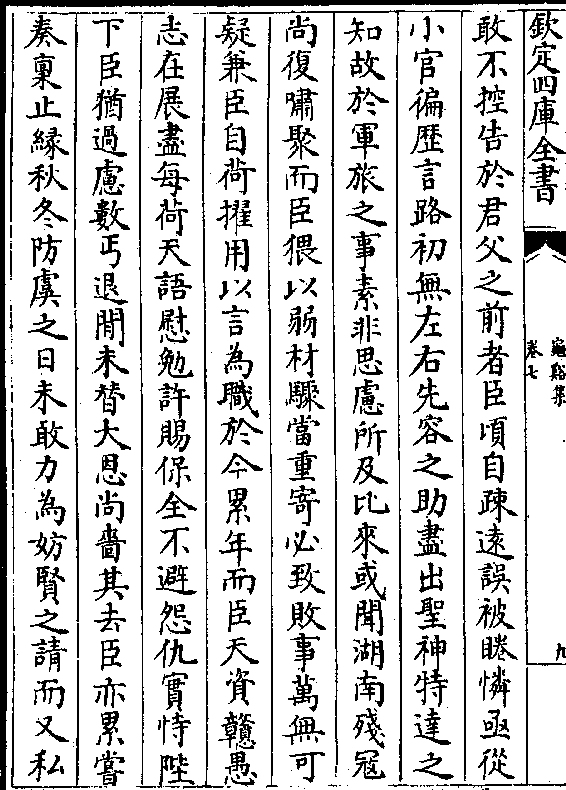 欽定四庫全書
龜谿集
卷七
九
敢不控告於君父之前者臣頃自疎逺誤被睠憐亟從
小官徧歴言路初無左右先容之助盡出聖神特達之
知故於軍旅之事素非思慮所及比來或聞湖南殘冦
尚復嘯聚而臣猥以弱材驟當重寄必致敗事萬無可
疑兼臣自荷擢用以言為職於今累年而臣天資戇愚
志在展盡每荷天語慰勉許賜保全不避怨仇實恃陛
下臣猶過慮數丐退閒未替大恩尚嗇其去臣亦累嘗
奏稟止縁秋冬防虞之日未敢力為妨賢之請而又私